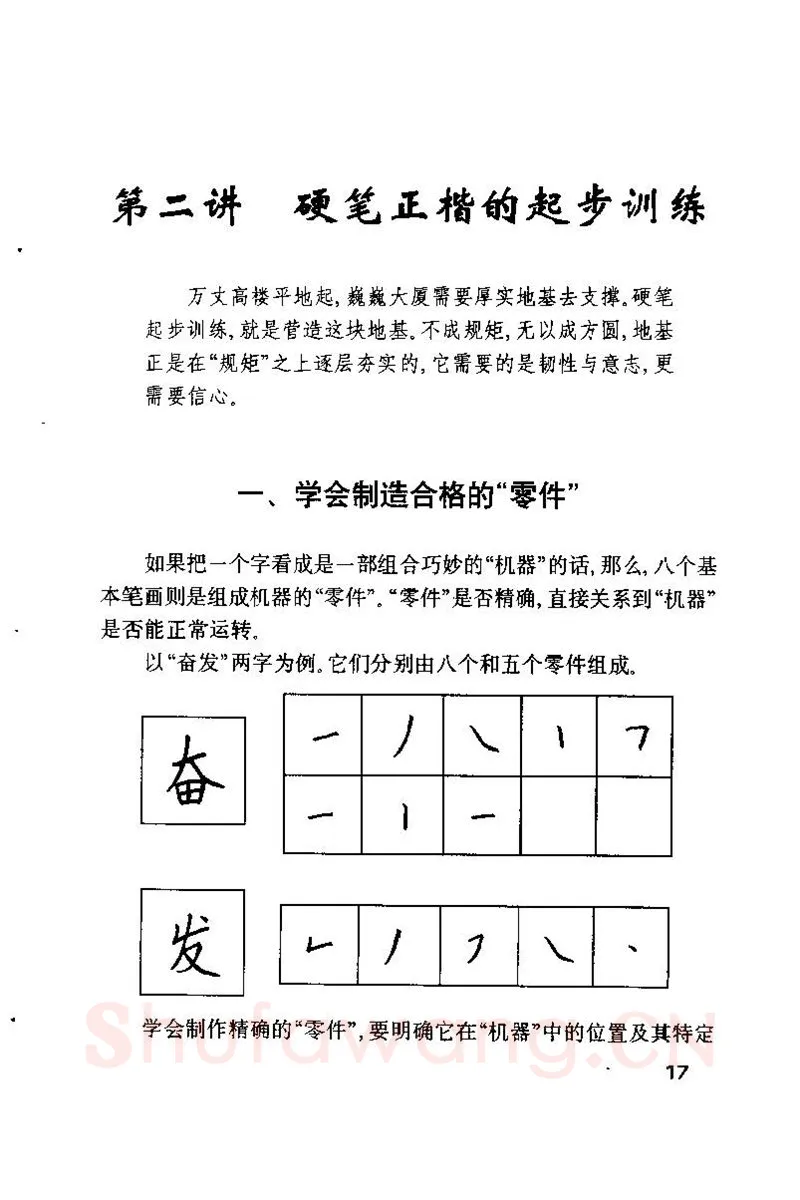 第二讲 硬笔正楷的起步训练
万丈高楼平地起,巍巍大厦需要厚实地基去支撑。硬笔
起步训练,就是营造这块地基。不成规矩,无以成方圆,地基
正是在“规矩”之上逐层夯实的,它需要的是韧性与意志,更
需要信心。
一、学会制造合格的“零件”
如果把一个字看成是一部组合巧妙的“机器”的话,那么,八个基
本笔画则是组成机器的“零件”。“零件”是否精确,直接关系到“机器”
是否能正常运转。
以“奋发”两字为例。它们分别由八个和五个零件组成。
奋
发
学会制作精确的“零件”,要明确它在“机器”中的位置及其特定
Shufawang.CN
17